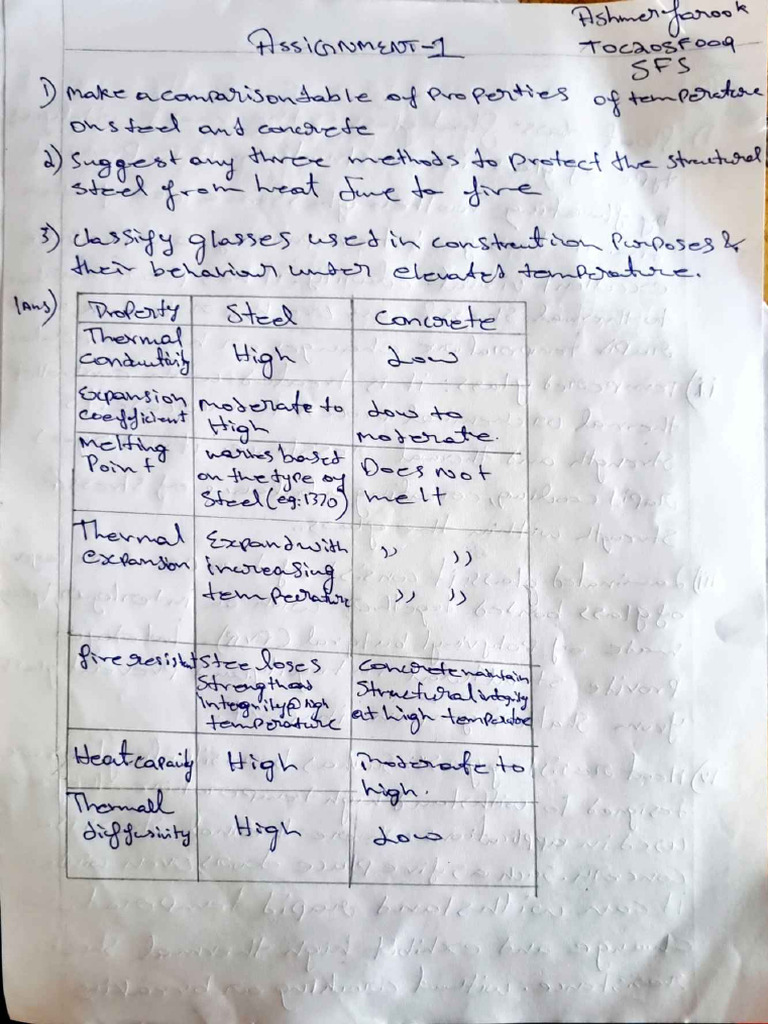 Ashmer farook
TOC20SF009
SFS
ASSIGNMENT-1
1) make a comparison table of properties of temperature
on steel and concrete
2) suggest any three methods to protect the structural
steel from heat due to fire
3) classify glasses used in construction purposes &
their behaviour under elevated temperature.
1Ans)
Property Steel Concrete
Thermal
conductivity High Low
Expansion
coefficient moderate to
High Low to
moderate.
Melting
Point varies based
on the type of
Steel (eg:1370) Does not
melt
Thermal
expansion Expand with
increasing
temperature ,, ,,
,, ,,
fire resist steel loses
strength and
integrity @ high
temperature concrete maintain
structural integrity
at high temperature
Heat capacity High moderate to
high.
Thermall
diffusivity High Low